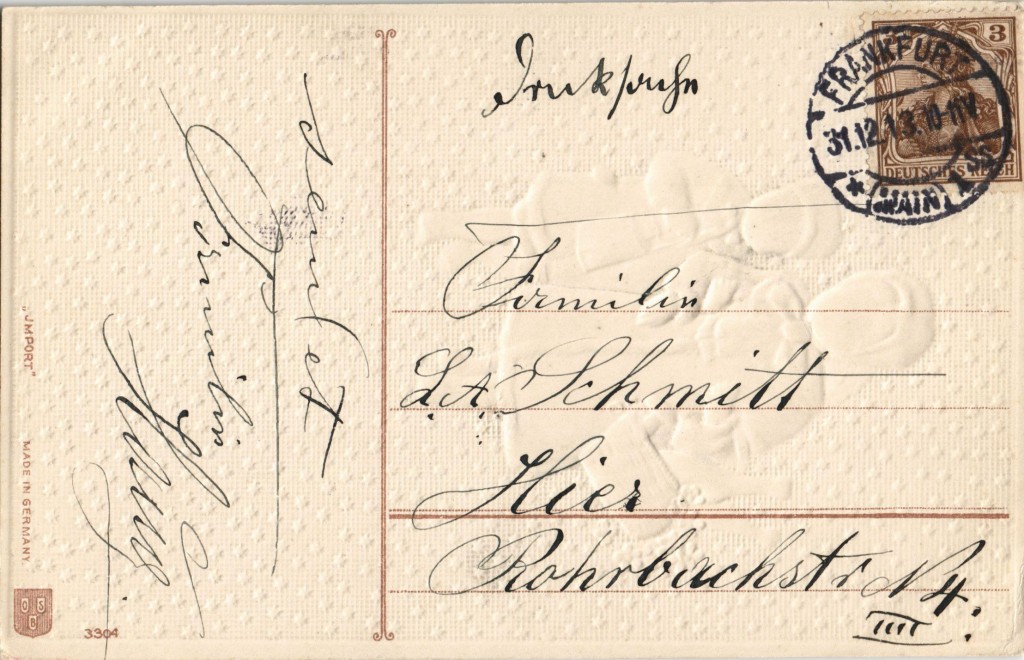 Drucksache
3
FRANKFURT
31.12.13.10-11V.
* (MAIN) 1
DEUTSCHES REICH
Familie
L. A. Schmitt
Hier
Rohrbachstr N 4.
IIII
sendet
Familie
"JMPORT"
MADE IN GERMANY.
O S B
3304